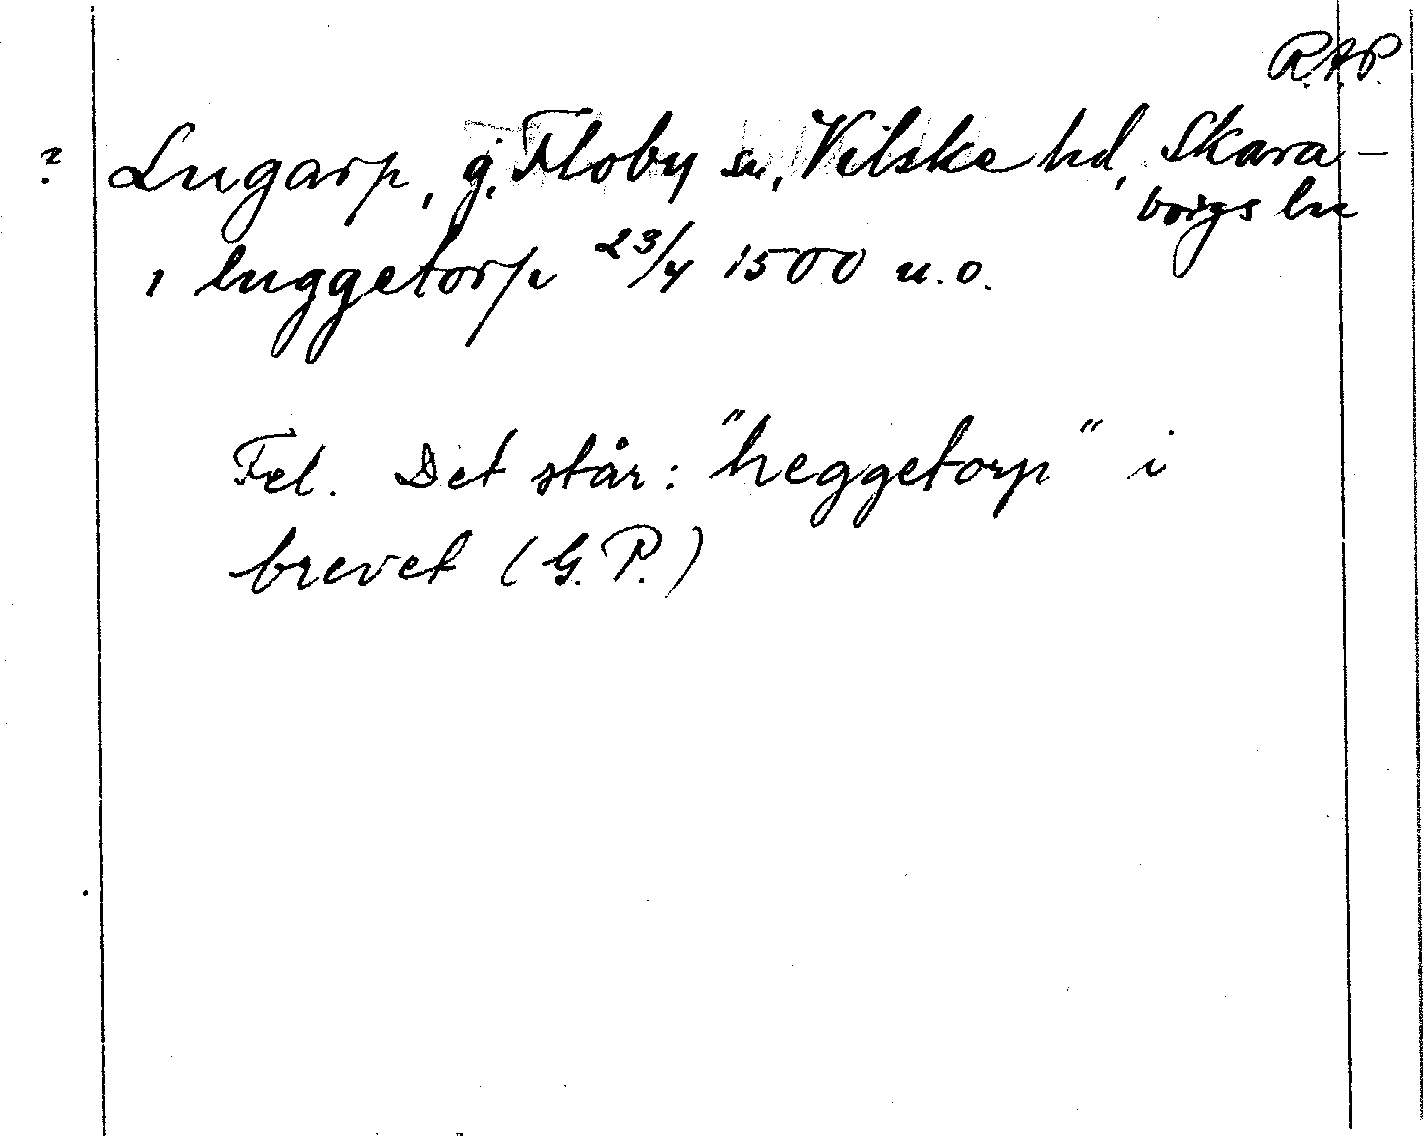 R.A.P.
? Lugarp, g, Floby sn, Vilske hd, Skara-
borgs ln
i luggetorp 23/4 1500 u.o.
Fel. Det står: "heggetorp" i
brevet (G.P.)